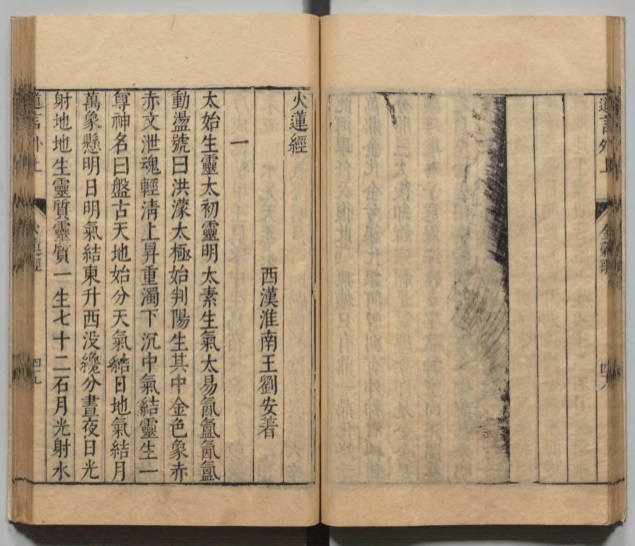 道言外上 金穀歌 四八
火蓮經
西漢淮南王劉安著
一
太始生靈太初靈明太素生氣太易氤氳氤氳
動盪號曰洪濛太極始判陽生其中金色象赤
赤文泄魂輕清上昇重濁下沉中氣結靈生一
尊神名曰盤古天地始分天氣結日地氣結月
萬象懸明日明氣結東升西没纔分晝夜日光
射地地生靈質靈質一生七十二石月光射水
道言外上 火蓮經 四九